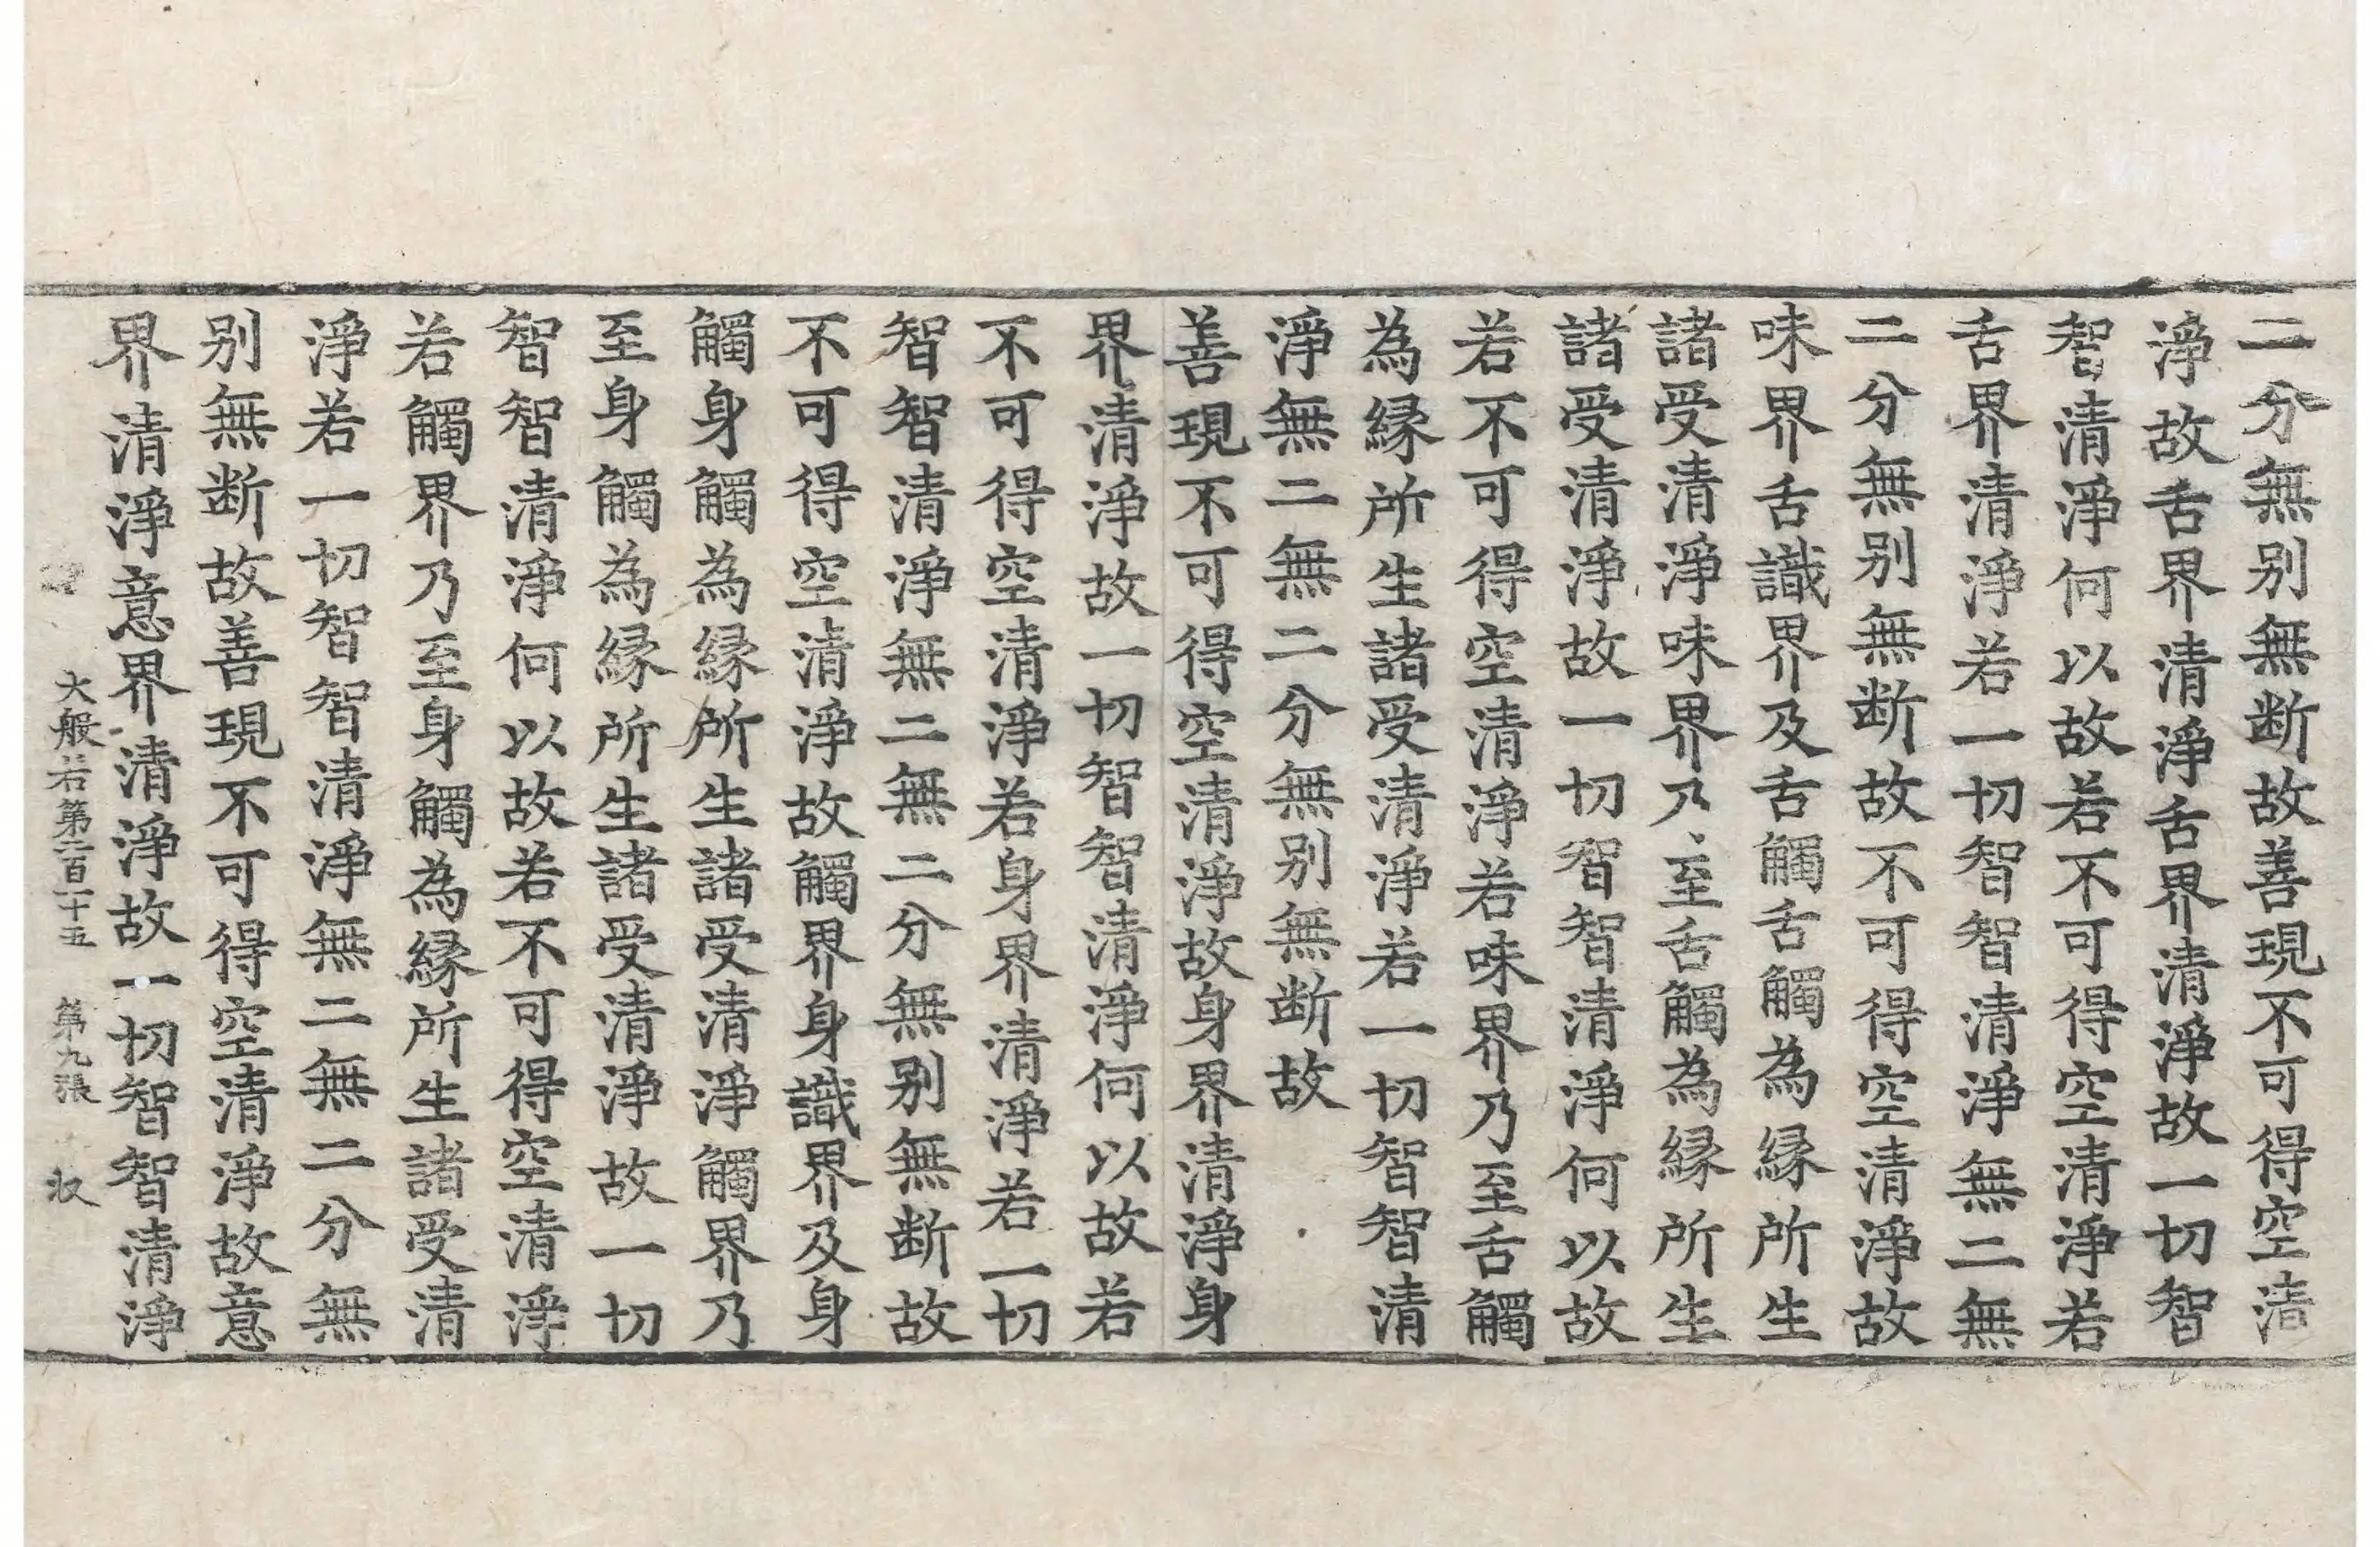 二分無别無断故善現不可得空清
淨故舌界清淨舌界清淨故一切智
智清淨何以故若不可得空清淨若
舌界清淨若一切智智清淨無二無
二分無别無断故不可得空清淨故
味界舌識界及舌觸舌觸為縁所生
諸受清淨味界乃至舌觸為縁所生
諸受清淨故一切智智清淨何以故
若不可得空清淨若味界乃至舌觸
為縁所生諸受清淨若一切智智清
淨無二無二分無别無断故
善現不可得空清淨故身界清淨身
界清淨故一切智智清淨何以故若
不可得空清淨若身界清淨若一切
智智清淨無二無二分無别無断故
不可得空清淨故觸界身識界及身
觸身觸為縁所生諸受清淨觸界乃
至身觸為縁所生諸受清淨故一切
智智清淨何以故若不可得空清淨
若觸界乃至身觸為縁所生諸受清
淨若一切智智清淨無二無二分無
别無断故善現不可得空清淨故意
界清淨意界清淨故一切智智清淨
大般若第二百二十五 第九張 㳒